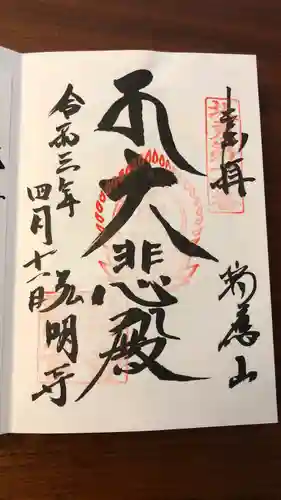 奉拝
瑞應山
大悲殿
令和三年
四月
弘明寺